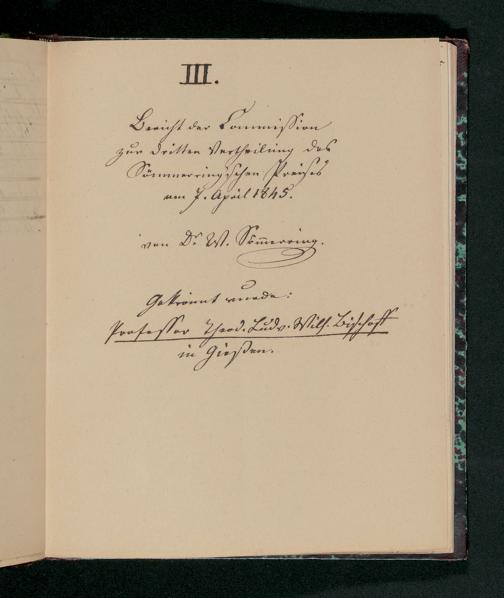 III.
Bericht der Commission
zur dritten Vertheilung des
Sömmerringischen Preises
am 7. April 1845.
von Dr. W. Sömmerring.
Gekrönt wurde:
Professor Theod. Ludw. Wilh. Bischoff
in Gießen.